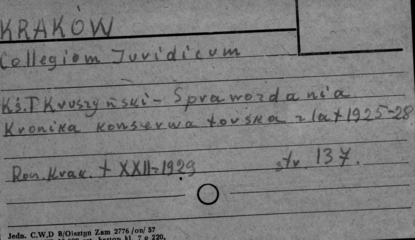 KRAKÓW
Collegiom Juridicum
Kś. T Kruszyński - Sprawozdania
Kronika konserwatorska z lat 1925-28
Ron. Krak. t XXII-1929 str. 137.
Jedn. C.W.D B/Olsztyn Zam 2776 /on/ 57
7 g 220,